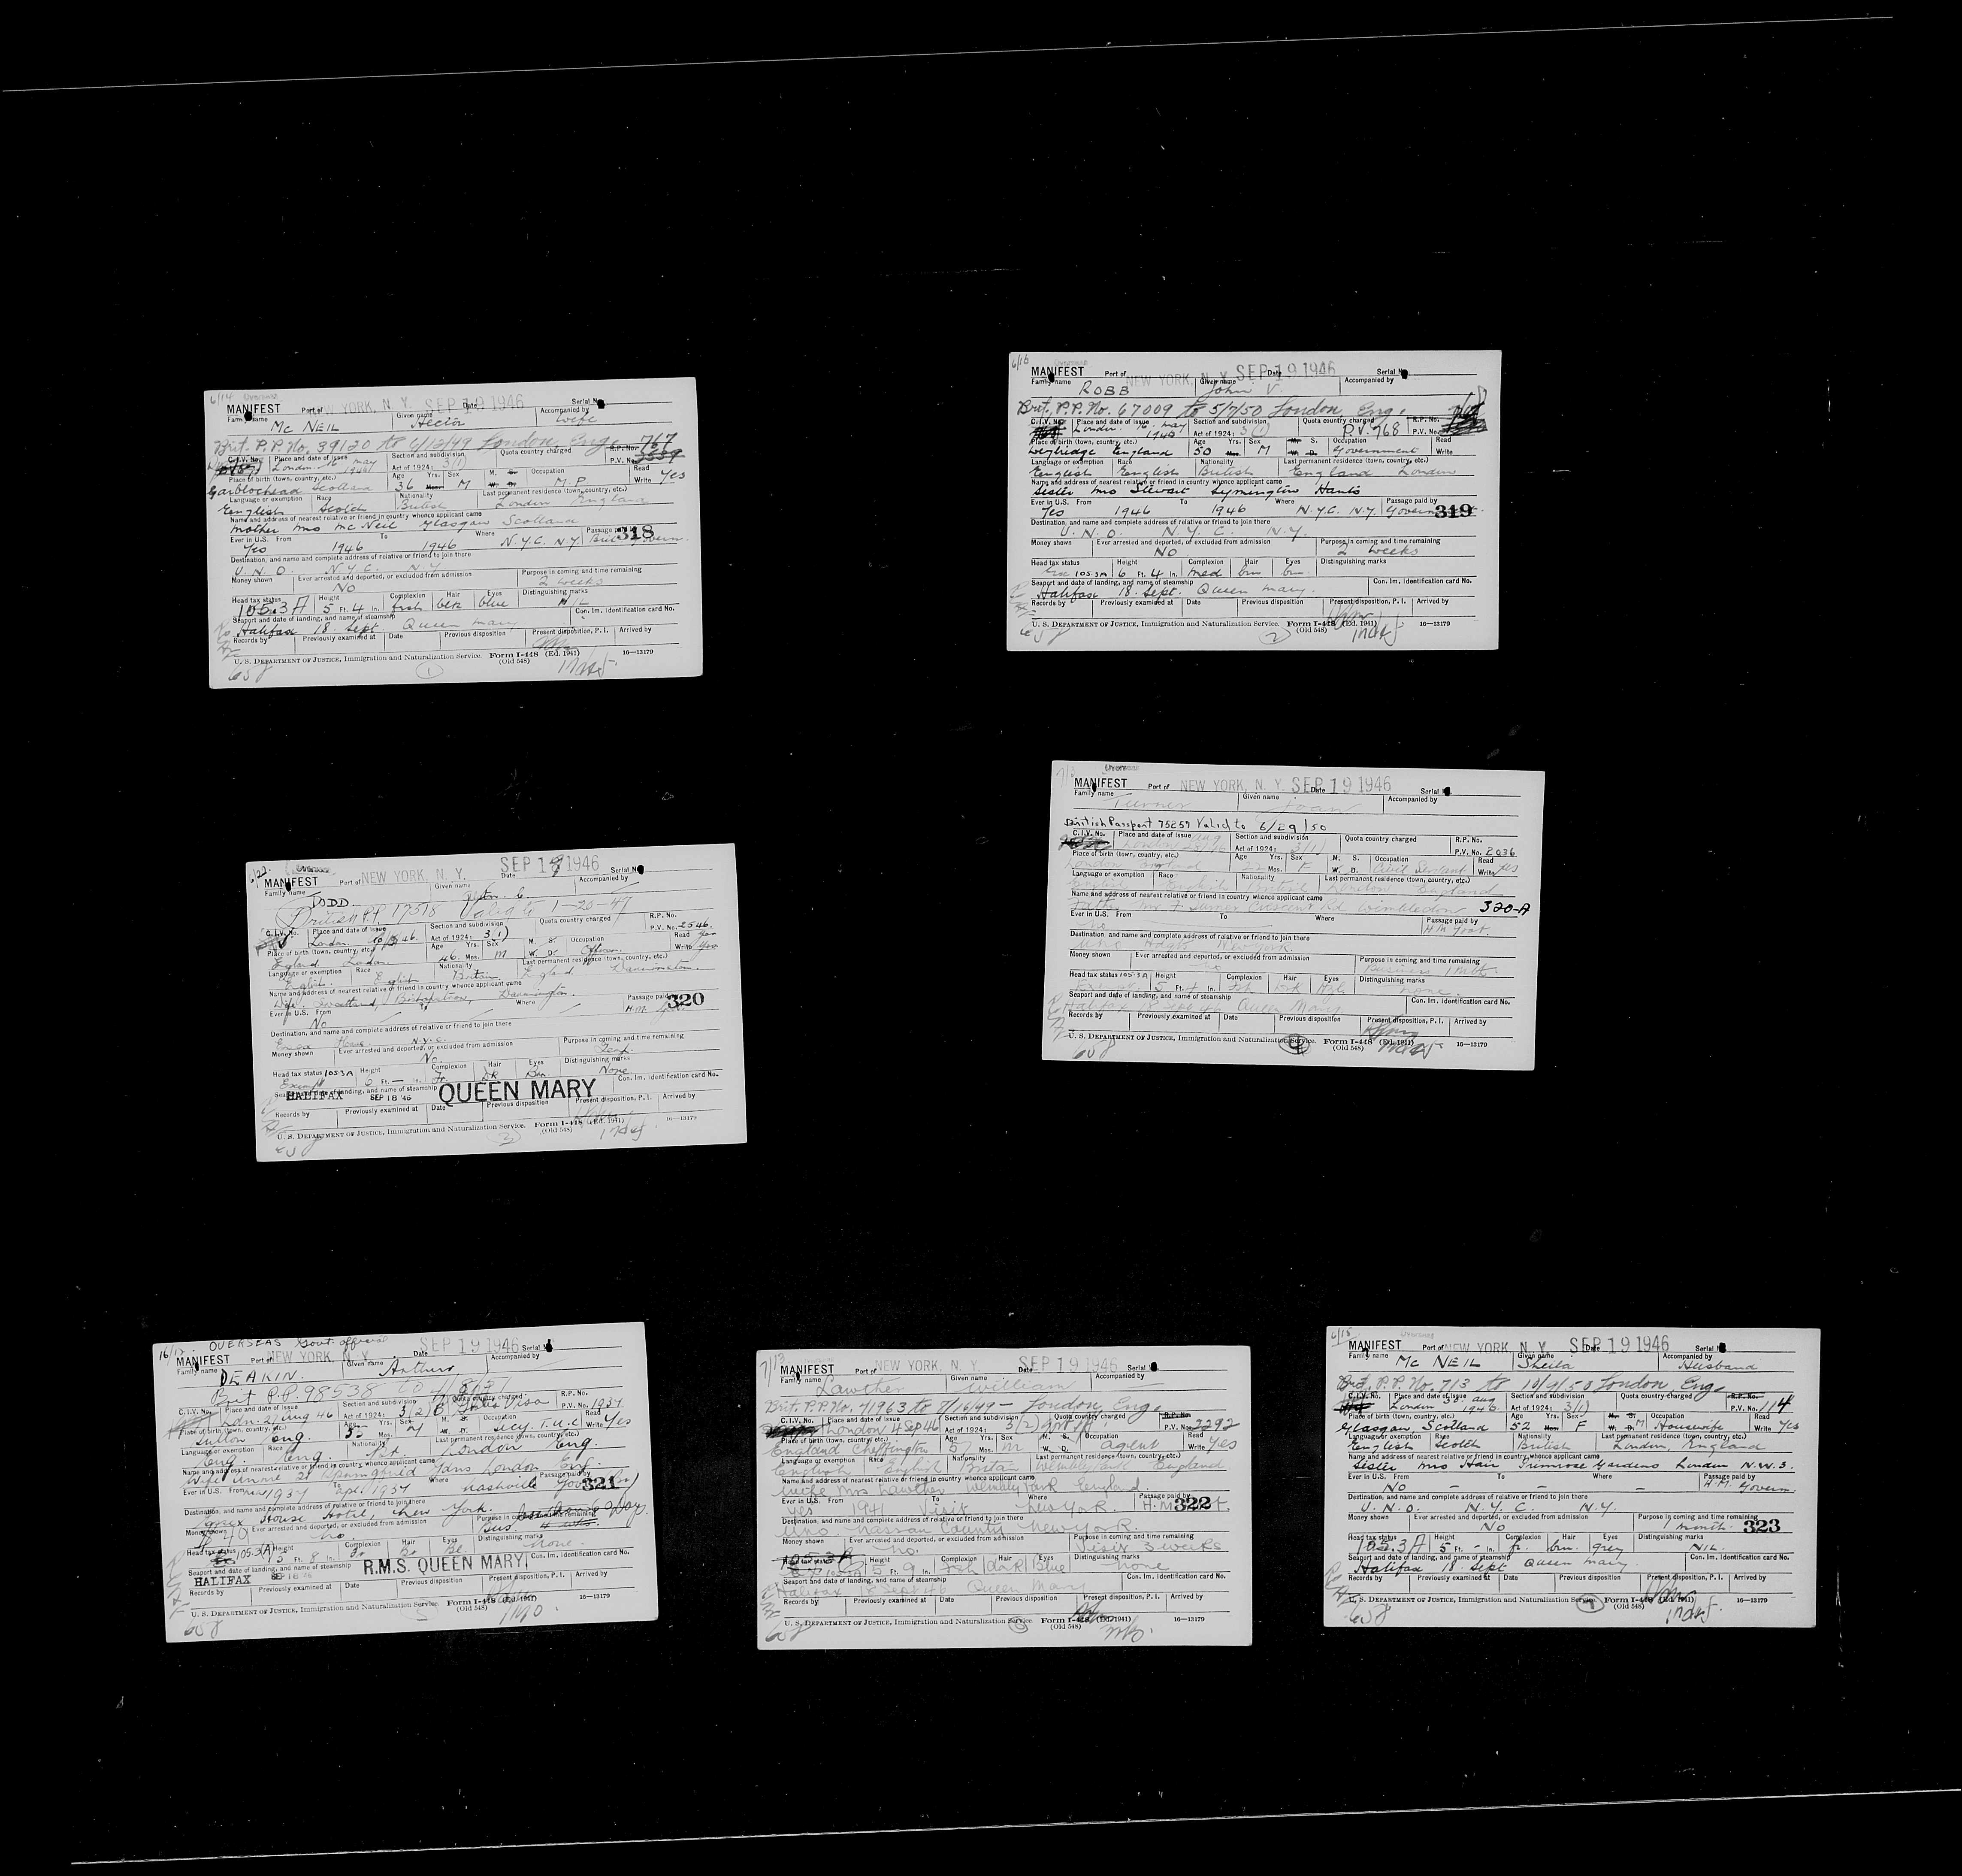 6/14 Overseas
MANIFEST Port of NEW YORK, N. Y. Date SEP 19 1946 Serial No.
Family name Mc NEIL Given name Hector Accompanied by Wife
Brit. P.P. No. 39120 to 6/12/49 London, Eng. 767
C.I.V. No. Place and date of issue London 16 May 1946 Section and subdivision Act of 1924: 3(1) Quota country charged R.P. No. P.V. No.
Place of birth (town, country, etc.) Garelochead Scotland Age 36 Yrs. Mos. Sex M M. S. W. D. Occupation M.P. Read Write Yes
Language or exemption English Race Scotch Nationality British Last permanent residence (town, country, etc.) London England
Name and address of nearest relative or friend in country whence applicant came
Mother Mrs Mc Neil Glasgow Scotland
Ever in U.S. Yes From 1946 To 1946 Where N.Y.C. N.Y. Passage paid by Brit. Govern. 318
Destination, and name and complete address of relative or friend to join there
U.N.O. N.Y.C. N.Y.
Money shown Ever arrested and deported, or excluded from admission NO Purpose in coming and time remaining 2 weeks
Head tax status 105.3 A Height 5 Ft. 4 In. Complexion fresh Hair blk Eyes blue Distinguishing marks NIL
Seaport and date of landing, and name of steamship Halifax 18 Sept Queen Mary Con. Im. Identification card No.
Records by Previously examined at Date Previous disposition Present disposition, P. I. Arrived by
U. S. DEPARTMENT OF JUSTICE, Immigration and Naturalization Service. Form I-448 (Ed. 1941) (Old 548) 16—13179
658 1
6/16 Overseas
MANIFEST Port of NEW YORK, N. Y. Date SEP 19 1946 Serial No.
Family name ROBB Given name John V. Accompanied by
Brit. P.P. No. 67009 to 5/7/50 London Eng. 768
C.I.V. No. Place and date of issue London 16 May 1946 Section and subdivision Act of 1924: 3(1) Quota country charged P.V. 768 R.P. No. P.V. No.
Place of birth (town, country, etc.) Weybridge England Age 50 Yrs. Mos. Sex M M. S. W. D. Occupation Government Read Write
Language or exemption English Race English Nationality British Last permanent residence (town, country, etc.) England London
Name and address of nearest relative or friend in country whence applicant came
Sister Mrs Stewart Lymington Hants
Ever in U.S. Yes From 1946 To 1946 Where N.Y.C. N.Y. Passage paid by Government 319
Destination, and name and complete address of relative or friend to join there
U.N.O. N.Y.C. N.Y.
Money shown Ever arrested and deported, or excluded from admission NO Purpose in coming and time remaining 2 weeks
Head tax status 105.3A Height 6 Ft. 4 In. Complexion med Hair brn Eyes brn. Distinguishing marks
Seaport and date of landing, and name of steamship Halifax 18 Sept. Queen Mary. Con. Im. Identification card No.
Records by Previously examined at Date Previous disposition Present disposition, P. I. Arrived by
U. S. DEPARTMENT OF JUSTICE, Immigration and Naturalization Service. Form I-448 (Ed. 1941) (Old 548) 16—13179
658 2
Overseas
MANIFEST Port of NEW YORK, N. Y. Date SEP 19 1946 Serial No.
Family name TODD Given name Accompanied by
British P.P. 17518 Valid to 1-20-47
C.I.V. No. Place and date of issue London Section and subdivision Act of 1924: 3(1) Quota country charged R.P. No. P.V. No. 2546
Place of birth (town, country, etc.) England London Age 46 Yrs. Mos. Sex M M. S. W. D. Occupation Officer Read Yes Write Yes
Language or exemption English Race English Nationality Britain Last permanent residence (town, country, etc.) England
Name and address of nearest relative or friend in country whence applicant came
Wife
Ever in U.S. No From To Where Passage paid by H.M. Govt. 320
Destination, and name and complete address of relative or friend to join there
Essex House N.Y.C.
Money shown Ever arrested and deported, or excluded from admission No Purpose in coming and time remaining Temp.
Head tax status 105.3A Exempt Height 6 Ft. — In. Complexion Fr. Hair DK Eyes Brn. Distinguishing marks None
Seaport and date of landing, and name of steamship HALIFAX SEP 18 '46 QUEEN MARY Con. Im. Identification card No.
Records by Previously examined at Date Previous disposition Present disposition, P. I. Arrived by
U. S. DEPARTMENT OF JUSTICE, Immigration and Naturalization Service. Form I-448 (Ed. 1941) (Old 548) 16—13179
658 3
Overseas
MANIFEST Port of NEW YORK, N. Y. Date SEP 19 1946 Serial No.
Family name Turner Given name Joan Accompanied by
British Passport 75259 Valid to 6/29/50
C.I.V. No. Place and date of issue London Aug Section and subdivision Act of 1924: 3(1) Quota country charged R.P. No. P.V. No. 2036
Place of birth (town, country, etc.) London England Age Yrs. Mos. Sex F M. S. W. D. Occupation Civil Servant Read Write Yes
Language or exemption English Race English Nationality British Last permanent residence (town, country, etc.) London England
Name and address of nearest relative or friend in country whence applicant came
Father Mr F Turner Crescent Rd Wimbledon 320-A
Ever in U.S. No From To Where Passage paid by H.M. Govt.
Destination, and name and complete address of relative or friend to join there
New York.
Money shown Ever arrested and deported, or excluded from admission Purpose in coming and time remaining Business 1 Mth
Head tax status 105-3A Height 5 Ft. 4 In. Complexion Fsh Hair Drk Eyes Hzl Distinguishing marks None.
Seaport and date of landing, and name of steamship Halifax 18 Queen Mary Con. Im. Identification card No.
Records by Previously examined at Date Previous disposition Present disposition, P. I. Arrived by
U. S. DEPARTMENT OF JUSTICE, Immigration and Naturalization Service. Form I-448 (Ed. 1941) (Old 548) 16—13179
658 4
OVERSEAS Govt. official
MANIFEST Port of NEW YORK, N. Y. Date SEP 19 1946 Serial No.
Family name DEAKIN. Given name Arthur Accompanied by
Brit P.P. 98538 to
C.I.V. No. Place and date of issue Ldn. 21 Aug 46 Section and subdivision Act of 1924: 3(2)B Quota country charged Visa R.P. No. P.V. No. 1937
Place of birth (town, country, etc.) Sutton Eng. Age 55 Yrs. Mos. Sex M M. S. W. D. Occupation Secy. T.U.C Read Write Yes
Language or exemption Eng. Race Eng. Nationality Brt. Last permanent residence (town, country, etc.) London Eng.
Name and address of nearest relative or friend in country whence applicant came
Wife Annie 21 Springfield Gdns London Eng.
Ever in U.S. From 1937 To Sept. 1937 Where Nashville Passage paid by Govt. 321
Destination, and name and complete address of relative or friend to join there
Essex House Hotel, New York.
Money shown Ever arrested and deported, or excluded from admission No Purpose in coming and time remaining Bus. 60 days
Head tax status 105.3(A) Height 5 Ft. 8 In. Complexion Hair Eyes Distinguishing marks None.
Seaport and date of landing, and name of steamship HALIFAX SEP 18 '46 R.M.S. QUEEN MARY Con. Im. Identification card No.
Records by Previously examined at Date Previous disposition Present disposition, P. I. Arrived by
U. S. DEPARTMENT OF JUSTICE, Immigration and Naturalization Service. Form I-448 (Ed. 1941) (Old 548) 16—13179
658 5
7/13
MANIFEST Port of NEW YORK, N. Y. Date SEP 19 1946 Serial No.
Family name Lawther Given name William Accompanied by
Brit. P.P. No. 71963 to 7/16/49 — London Eng.
C.I.V. No. Place and date of issue London 4 Sep 46 Section and subdivision Act of 1924: 3(2) Quota country charged R.P. No. P.V. No. 2292
Place of birth (town, country, etc.) England Choppington Age 57 Yrs. Mos. Sex M M. S. W. D. Occupation agent Read Write Yes
Language or exemption English Race English Nationality Last permanent residence (town, country, etc.) Wembley Park England
Name and address of nearest relative or friend in country whence applicant came
Wife Mrs Lawther Wembley Park England.
Ever in U.S. Yes From 1941 To Visit Where New York. Passage paid by H.M. 322
Destination, and name and complete address of relative or friend to join there
Uno Nassau County New York.
Money shown Ever arrested and deported, or excluded from admission No. Purpose in coming and time remaining Visit 3 weeks
Head tax status 105.3A Height 5 Ft. 9 In. Complexion Fsh Hair dark Eyes Blue Distinguishing marks None
Seaport and date of landing, and name of steamship Halifax 18 Sept 46 Queen Mary Con. Im. Identification card No.
Records by Previously examined at Date Previous disposition Present disposition, P. I. Arrived by
U. S. DEPARTMENT OF JUSTICE, Immigration and Naturalization Service. Form I-448 (Ed. 1941) (Old 548) 16—13179
658 6
6/15 Overseas
MANIFEST Port of NEW YORK, N. Y. Date SEP 19 1946 Serial No.
Family name Mc NEIL Given name Sheila Accompanied by Husband
Brit. P.P. No. 713 to London Eng.
C.I.V. No. Place and date of issue London 30 Aug 1946 Section and subdivision Act of 1924: 3(1) Quota country charged R.P. No. P.V. No. 114
Place of birth (town, country, etc.) Glasgow, Scotland Age 52 Yrs. Mos. Sex F M. S. W. D. M Occupation Housewife Read Write Yes
Language or exemption English Race Scotch Nationality British Last permanent residence (town, country, etc.) London, England
Name and address of nearest relative or friend in country whence applicant came
Sister Mrs Hair Primrose Gardens London N.W.3.
Ever in U.S. NO From – To – Where – Passage paid by H.M. Govern.
Destination, and name and complete address of relative or friend to join there
U.N.O. N.Y.C. N.Y.
Money shown Ever arrested and deported, or excluded from admission NO Purpose in coming and time remaining month 323
Head tax status 105.3A Height 5 Ft. - In. Complexion fr. Hair brn. Eyes grey Distinguishing marks NIL
Seaport and date of landing, and name of steamship Halifax 18 Sept Queen Mary. Con. Im. Identification card No.
Records by Previously examined at Date Previous disposition Present disposition, P. I. Arrived by
U. S. DEPARTMENT OF JUSTICE, Immigration and Naturalization Service. Form I-448 (Ed. 1941) (Old 548) 16—13179
658 7